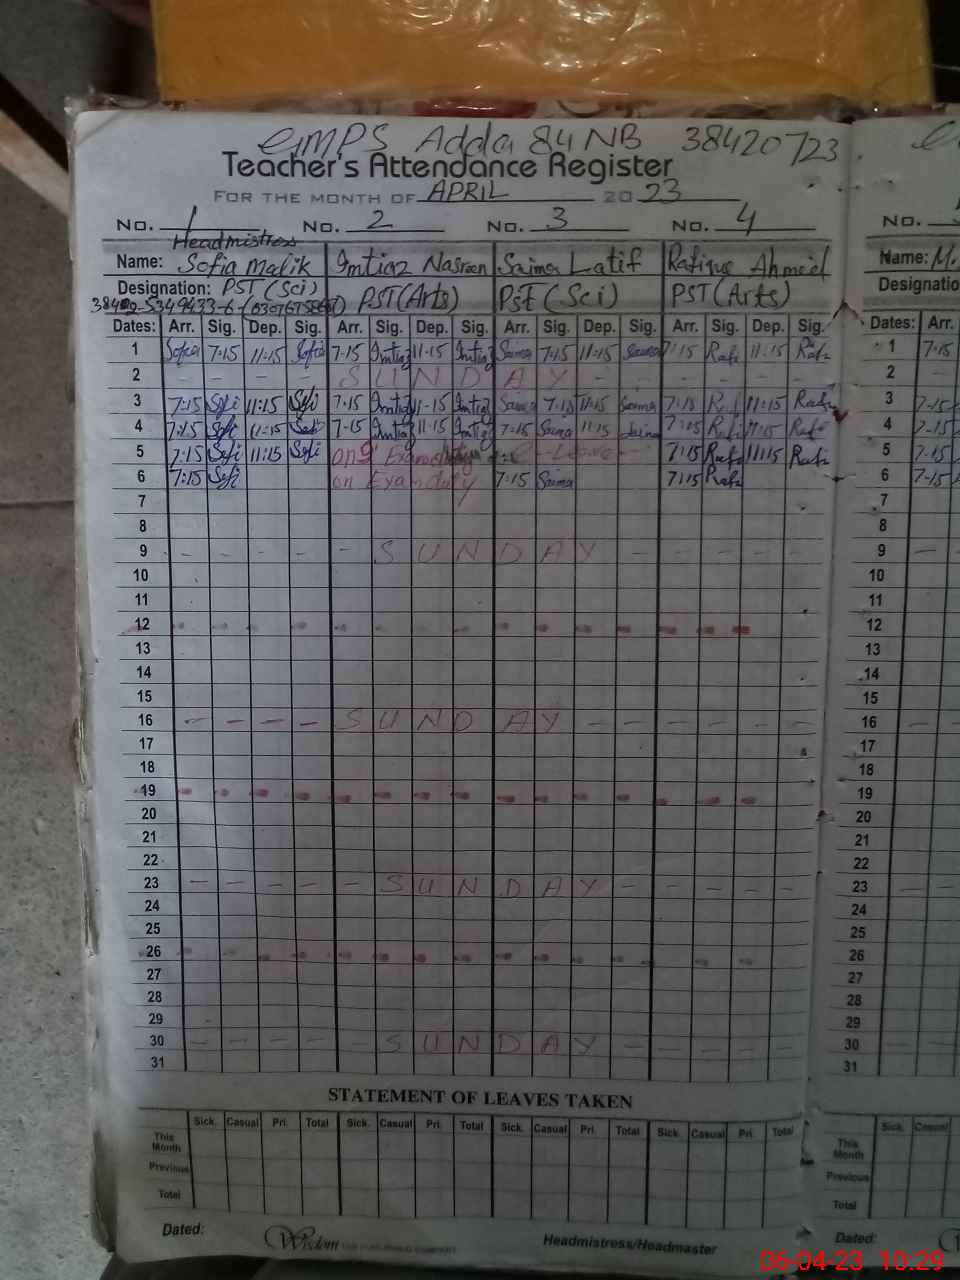 GMPS Adda 84 NB 38420723
Teacher's Attendance Register
FOR THE MONTH OF APRIL 2023
No. 1 No. 2 No. 3 No. 4 No.
Headmistress
Name: Sofia Malik Imtiaz Nasreen Saima Latif Rafique Ahmed Name: M.
Designation: PST (Sci) PST (Arts) PST (Sci) PST (Arts) Designatio
Dates: Arr. Sig. Dep. Sig. Arr. Sig. Dep. Sig. Arr. Sig. Dep. Sig. Arr. Sig. Dep. Sig. Dates: Arr.
1 Sofia 7:15 11:15 Sofia 7-15 Imtiaz 11-15 Imtiaz Saima 7:15 11:15 Saima 7:15 Rafi 11:15 Rafi 1 7-15
2 - - - - S U N D A Y - - - - - - 2 -
3 7:15 Sofi 11:15 Sofi 7-15 Imtiaz 11-15 Imtiaz Saima 7:15 11:15 Saima 7:15 Rafi 11:15 Rafi 3 7-15
4 7:15 Sofi 11:15 Sofi 7-15 Imtiaz 11-15 Imtiaz 7:15 Saima 11:15 Saima 7:15 Rafi 11:15 Rafi 4 7-15
5 7:15 Sofi 11:15 Sofi on Exam duty Leave 7:15 Rafi 11:15 Rafi 5 7-15
6 7:15 Sofi on Exam duty 7:15 Saima 7:15 Rafi 6 7-15
7 7
8 8
9 - - - - - S U N D A Y - - - - - 9 -
10 10
11 11
12 12
13 13
14 14
15 15
16 - - - - S U N D A Y - - - - - - 16 -
17 17
18 18
19 19
20 20
21 21
22 22
23 - - - - - S U N D A Y - - - - - 23 -
24 24
25 25
26 26
27 27
28 28
29 29
30 - - - - - S U N D A Y - - - - - 30 -
31 31
STATEMENT OF LEAVES TAKEN
Sick. Casual Pri. Total Sick. Casual Pri. Total Sick. Casual Pri. Total Sick. Casual Pri. Total Sick. Casual
This Month This Month
Previous Previous
Total Total
Dated: Wisdom Headmistress/Headmaster Dated:
06-04-23 10:29